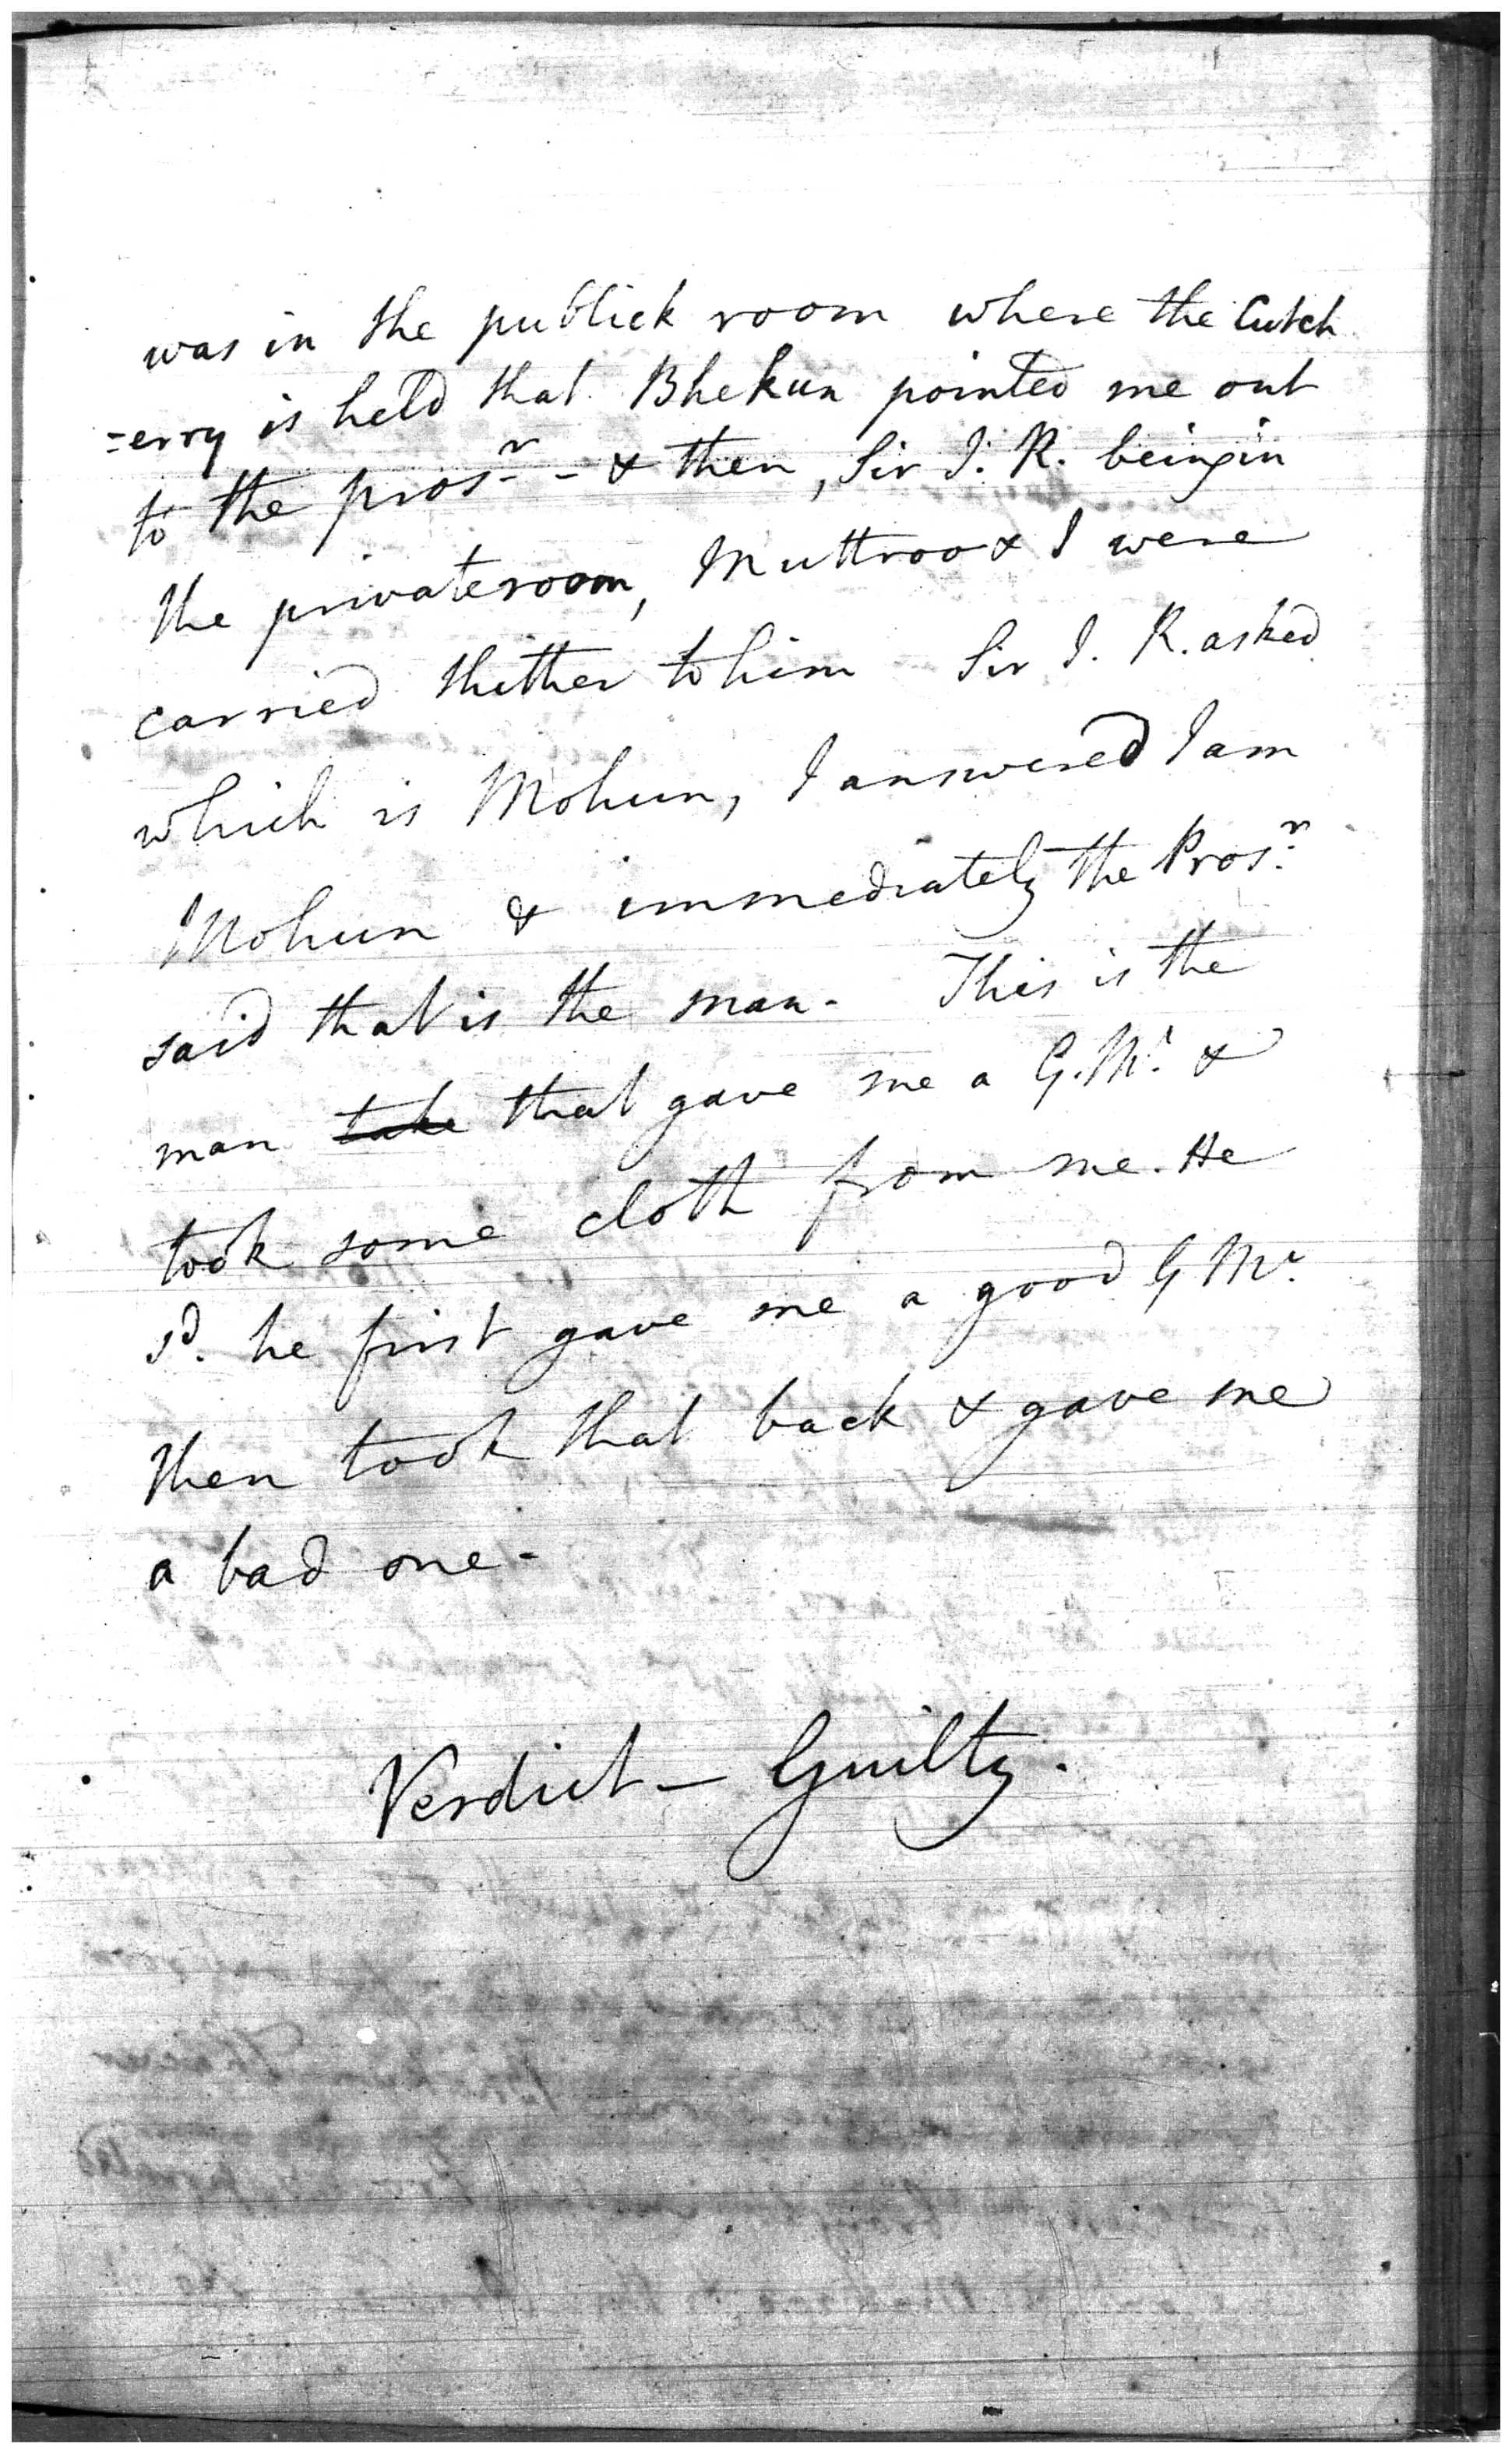 was in the publick room where the Cutch
=erry is held that. Bhekun pointed me out
to the prosr. - & then, Sir J. R. being in
the private room, Muttroo & I were
carried thither to him Sir J. R. asked
which is Mohun, I answered I am
Mohun & immediately the Prosr.
said that is the man. This is the
man take that gave me a G. Mr. &
took some cloth from me. He
sd. he first gave me a good G Mr.
then took that back & gave me
a bad one.
Verdict - Guilty.